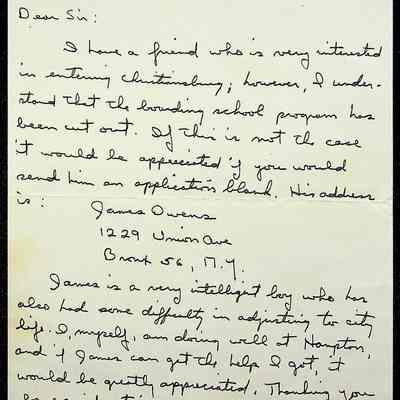 Dear Sir:
I have a friend who is very interested
in entering Christiansburg; however, I under-
stand that the boarding school program has
been cut out. If this is not the case
it would be appreciated if you would
send him an application blank. His address
is:
James Owens
1229 Union Ave
Bronx 56, N.Y.
James is a very intelligent boy who has
also had some difficulty in adjusting to city
life. I, myself, am doing well at Hampton,
and if James can get the help I got, it
would be greatly appreciated. Thanking you